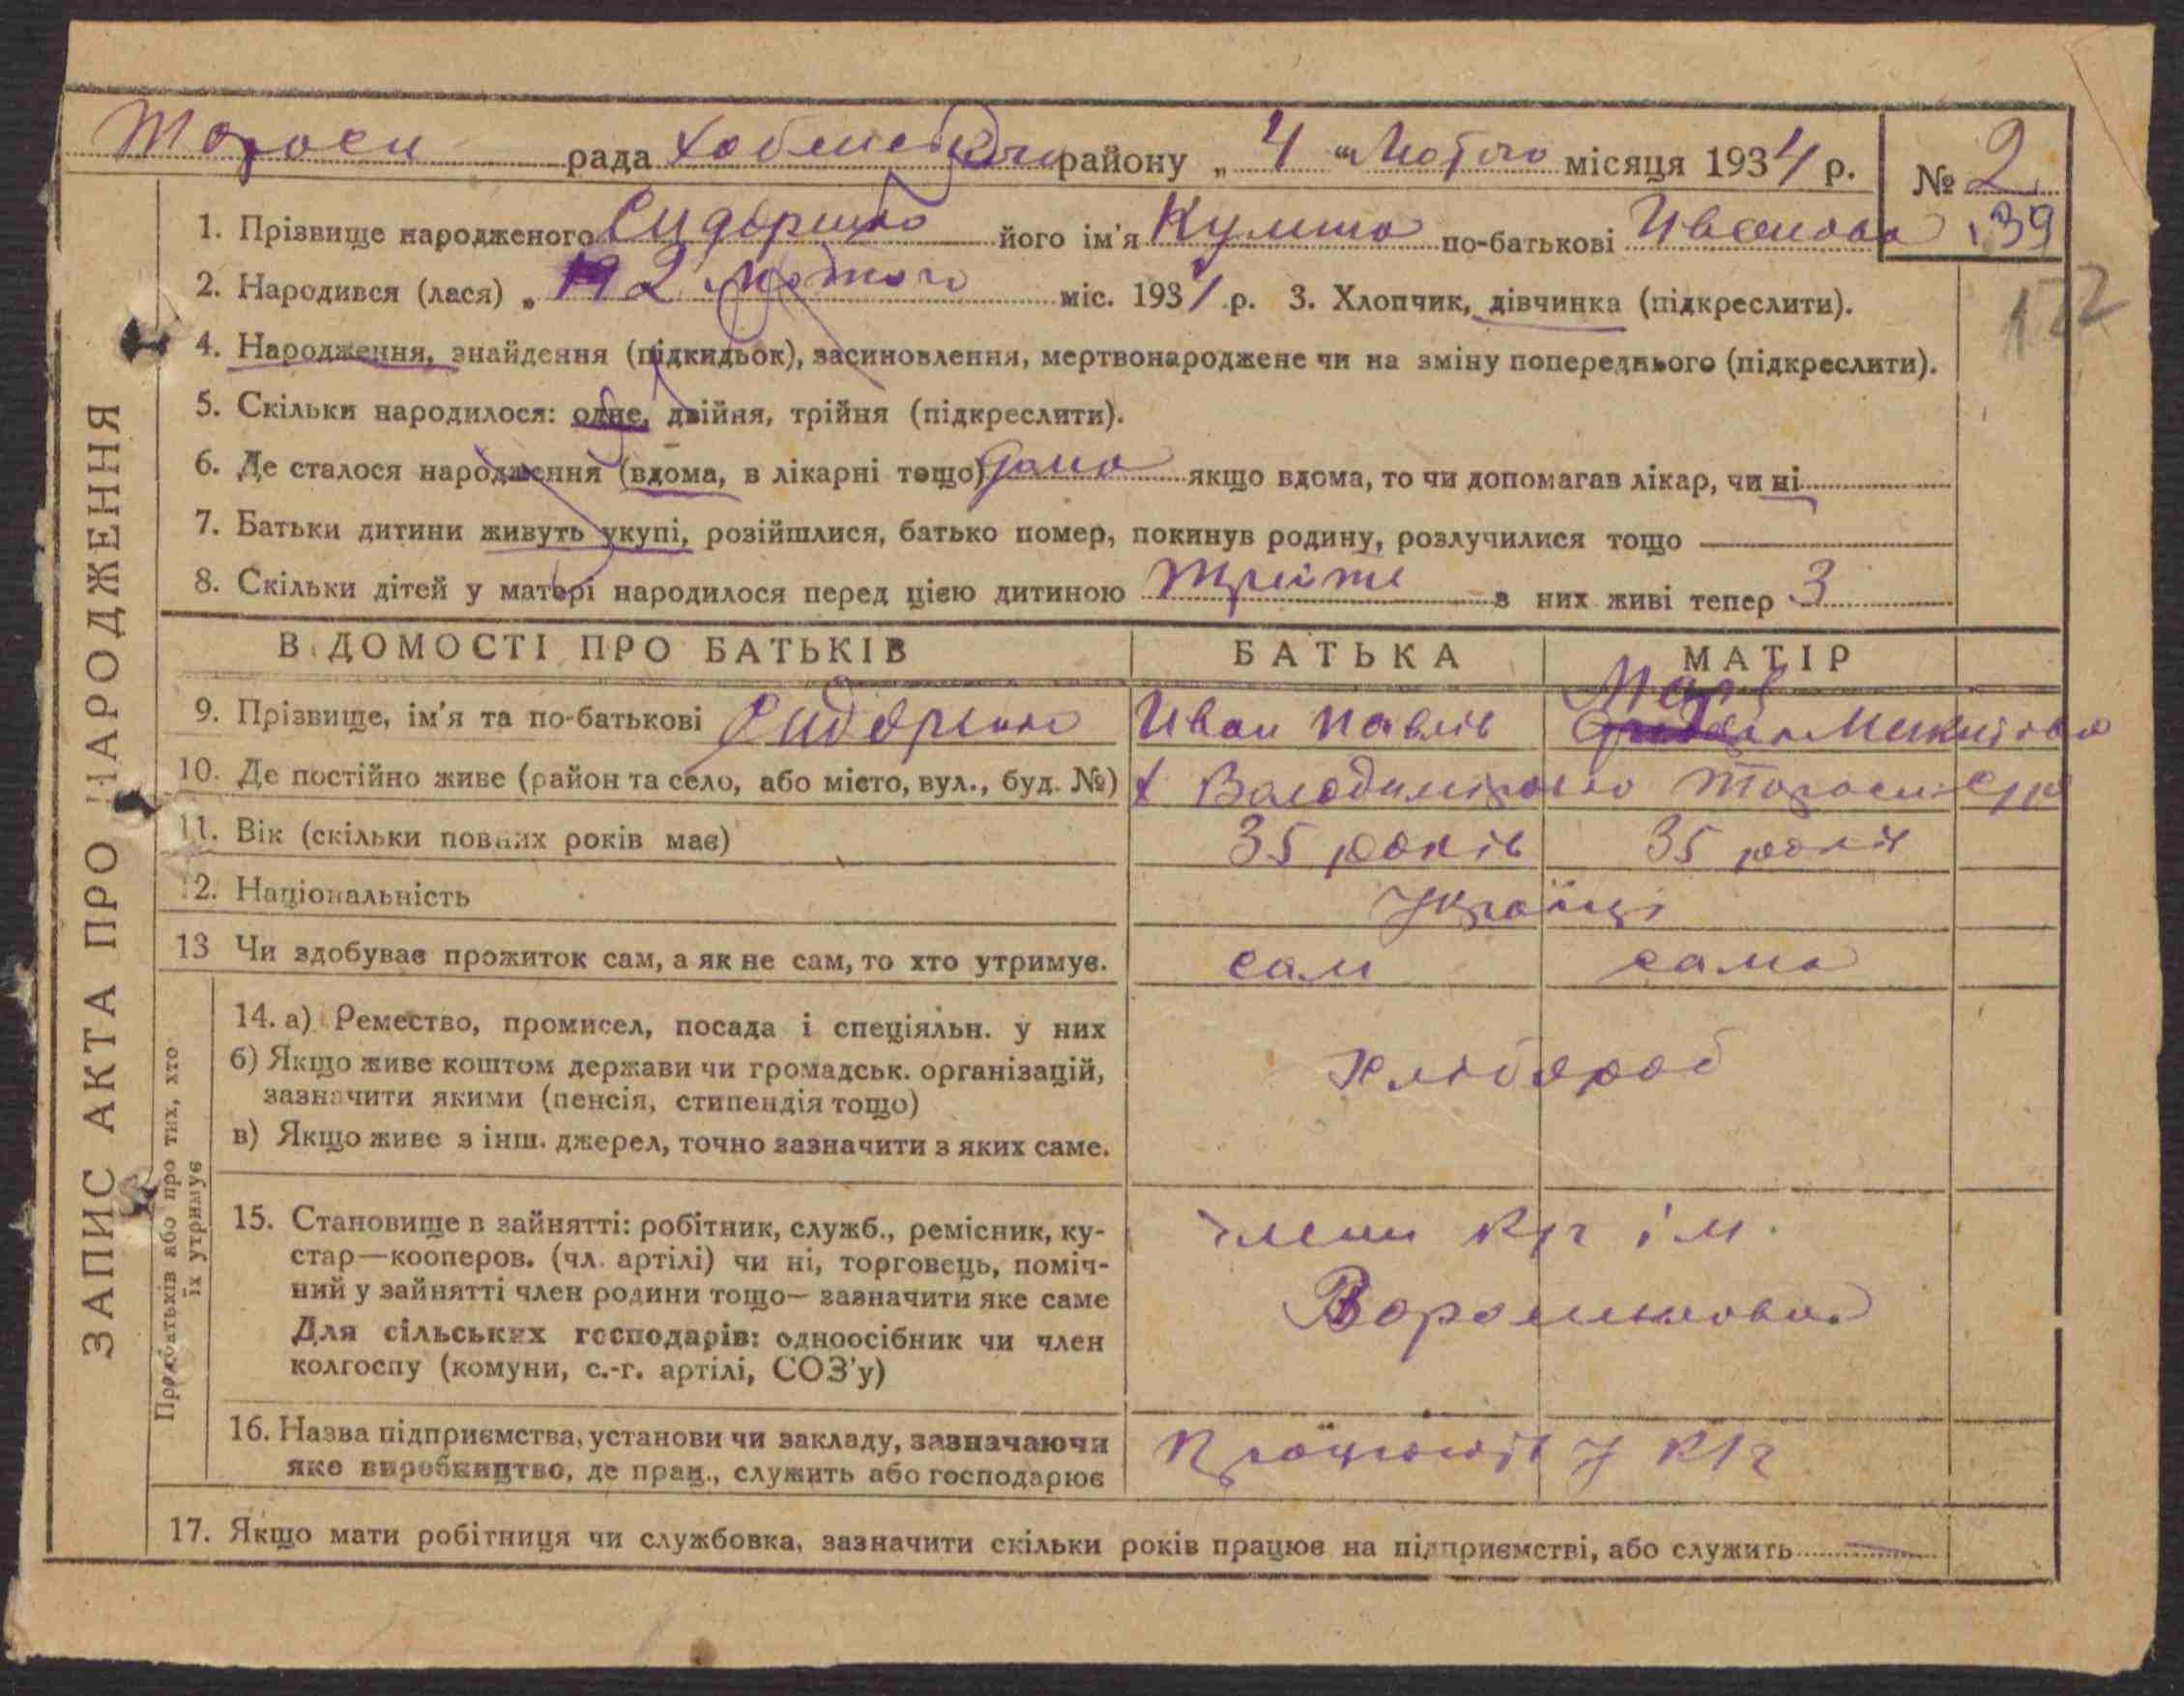 Тараси рада Хабенського району „ 4 “ Лютого місяця 1934 р. № 2
1. Прізвище народженого Сидоренко його ім'я по-батькові Иванова 139
2. Народився (лася) „ 2 Лютого міс. 1934 р. 3. Хлопчик, дівчинка (підкреслити).
4. Народження, знайдення (підкидьок), засиновлення, мертвонароджене чи на зміну попереднього (підкреслити).
5. Скільки народилося: одне, двійня, трійня (підкреслити).
6. Де сталося народження (вдома, в лікарні тощо) дома якщо вдома, то чи допомагав лікар, чи ні
7. Батьки дитини живуть укупі, розійшлися, батько помер, покинув родину, розлучилися тощо
8. Скільки дітей у матері народилося перед цією дитиною з них живі тепер 3
ВІДОМОСТІ ПРО БАТЬКІВ БАТЬКА МАТІР
9. Прізвище, ім'я та по-батькові Сидоренко Иван Павлів
10. Де постійно живе (район та село, або місто, вул., буд. №) х Володимирівка
11. Вік (скільки повних років має) 35 років 35 років
12. Національність Українці
13 Чи здобуває прожиток сам, а як не сам, то хто утримує. сам сама
14. а) Ремество, промисел, посада і спеціяльн. у них
б) Якщо живе коштом держави чи громадськ. організацій,
зазначити якими (пенсія, стипендія тощо)
в) Якщо живе з інш. джерел, точно зазначити з яких саме.
Хлібороб
15. Становище в зайнятті: робітник, служб., ремісник, ку-
стар—кооперов. (чл. артілі) чи ні, торговець, поміч-
ний у зайнятті член родини тощо— зазначити яке саме
Для сільських господарів: одноосібник чи член
колгоспу (комуни, с.-г. артілі, СОЗ'у)
член кг ім.
Ворошилова
16. Назва підприємства, установи чи закладу, зазначаючи
яке виробництво, де прац., служить або господарює
Працюють у кг
17. Якщо мати робітниця чи службовка, зазначити скільки років працює на підприємстві, або служить
ЗАПИС АКТА ПРО НАРОДЖЕННЯ
Про батьків або про тих, хто
їх утримує